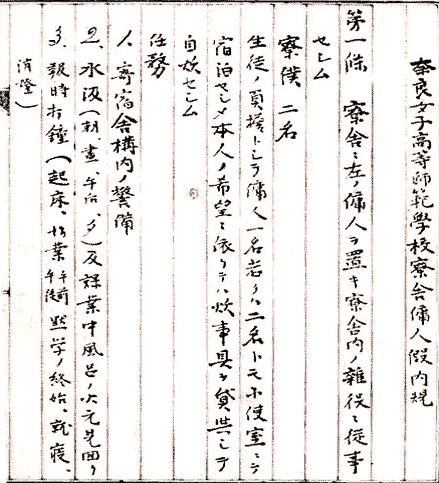 奈良女子高等師範學校寮舎傭人假内規
第一條　寮舎ニ左ノ傭人ヲ置キ寮舎内ノ雜役ニ從事
セシム
寮僕　二名
生徒ノ員擴トシテ傭人一名若クハ二名トモ小使室ニテ
宿泊セシメ本人ノ希望ニ依リテハ炊事具ヲ貸與シテ
自炊セシム
任務
1、寄宿舎構内ノ警備
2、水汲(朝、晝、午后、夕)及課業中風呂ノ火元見回リ
3、報時打鐘(起床、始業午前午後黙学ノ終始、就寝、
消燈)